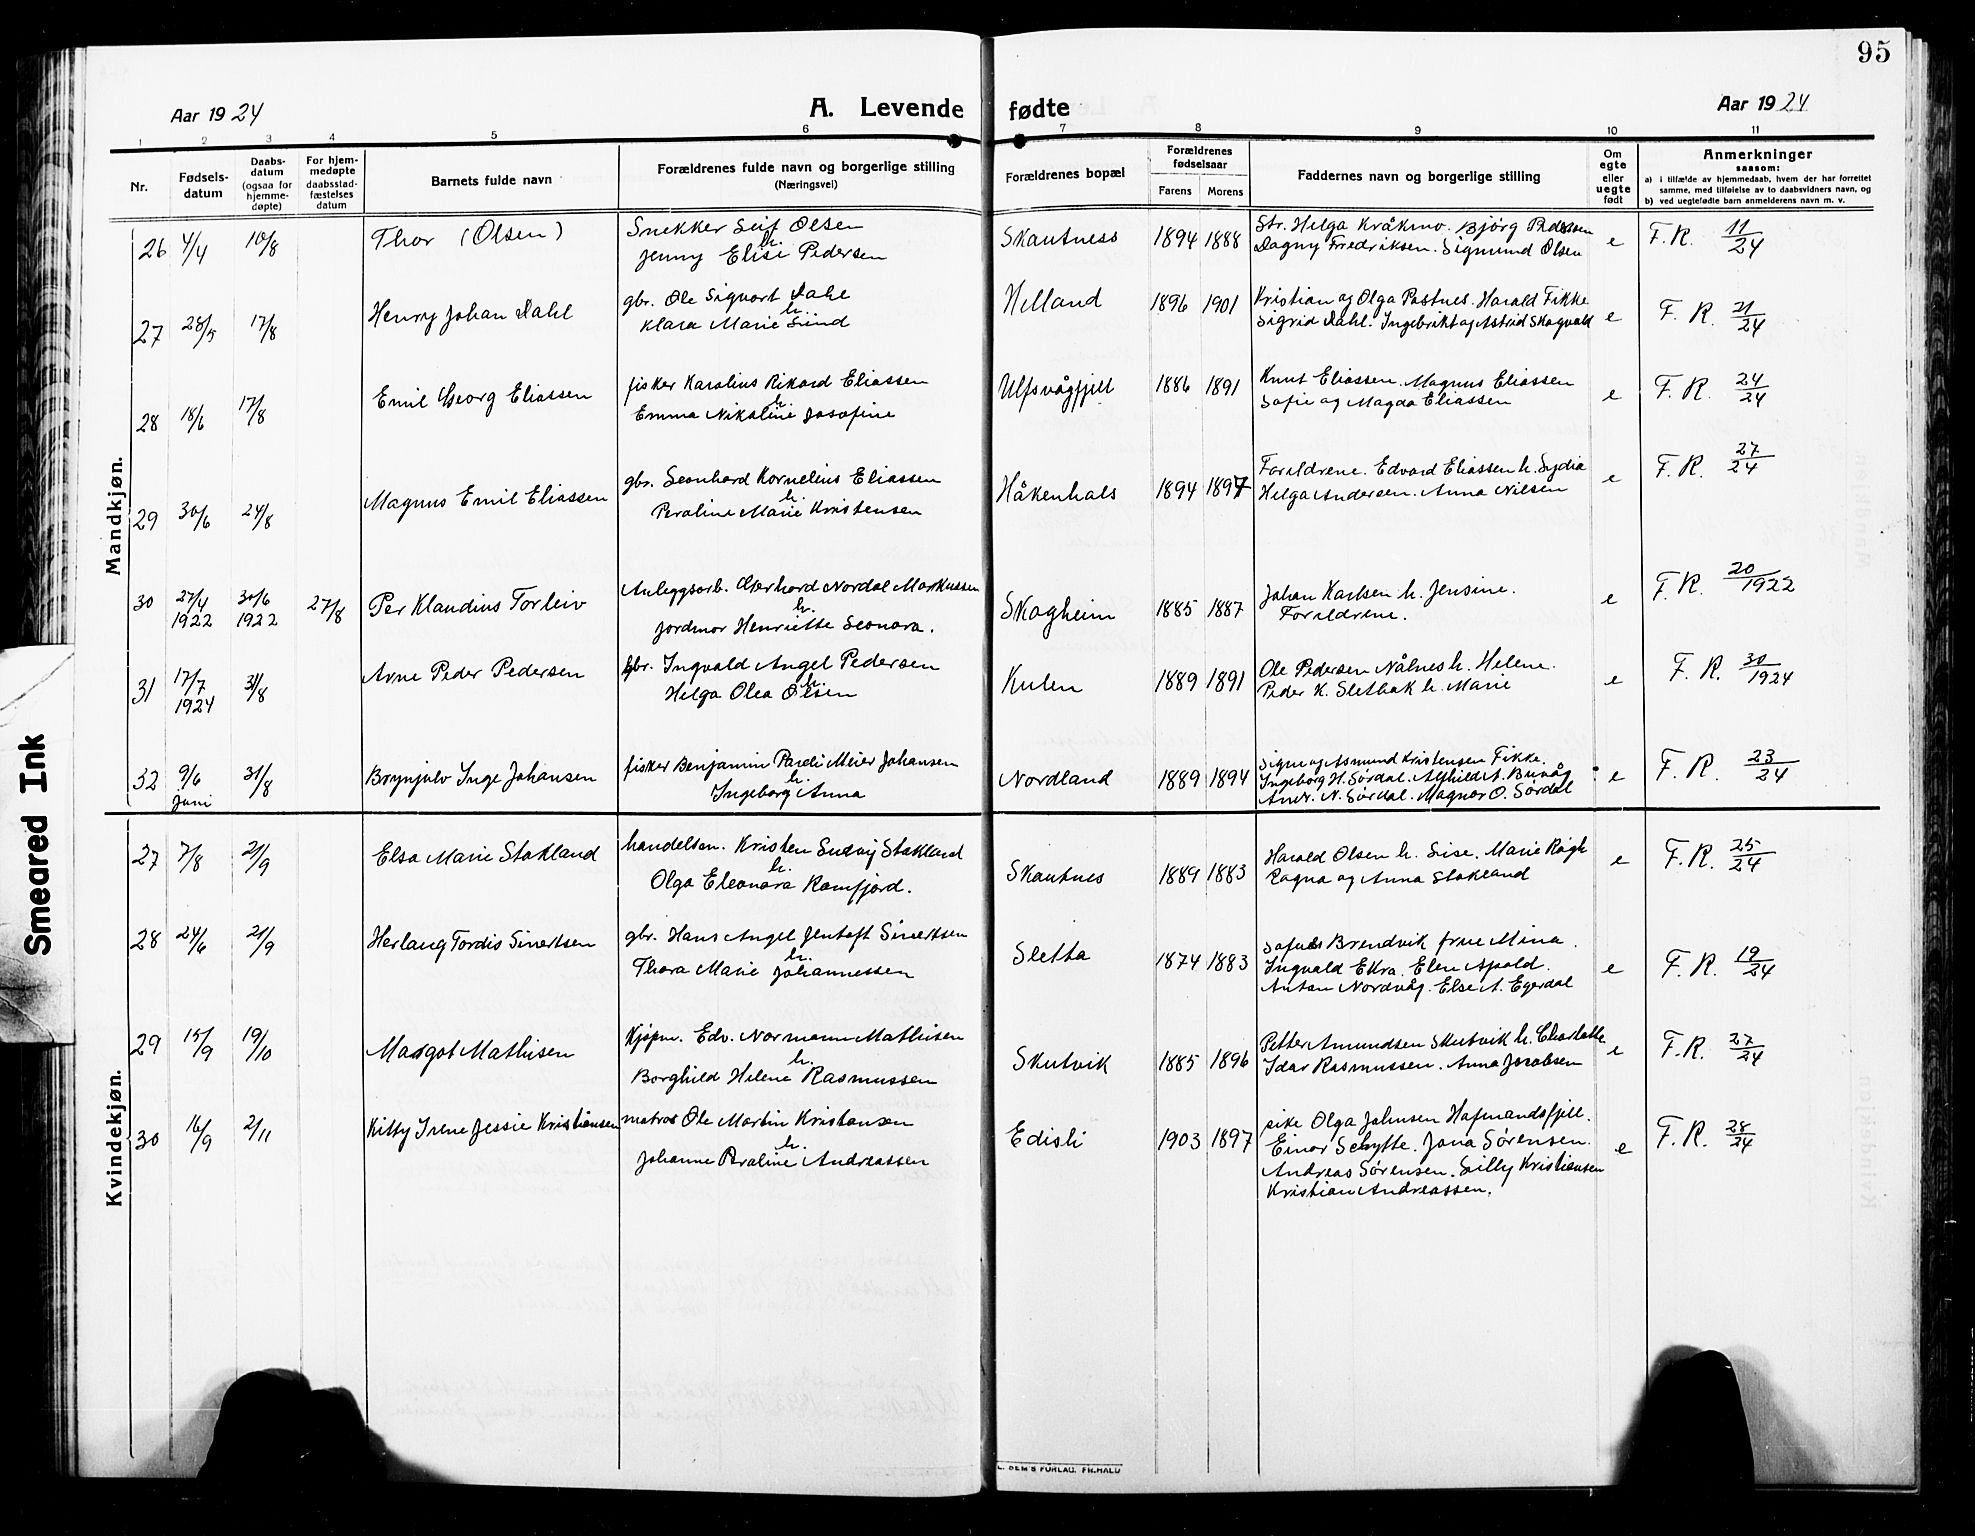 95
Aar 1924
A. Levende fødte
Aar 1924
1 2 3 4 5 6 7 8 9 10 11
Nr.
Fødsels-
datum
Daabs-
datum
(ogsaa for
hjemme-
døpte)
For hjem-
medøpte
daabsstad-
fæstelses
datum
Barnets fulde navn
Forældrenes fulde navn og borgerlige stilling
(Næringsvei)
Forældrenes bopæl
Forældrenes
fødselsaar
Farens Morens
Faddernes navn og borgerlige stilling
Om
egte
eller
uegte
født
Anmerkninger
saasom:
a) i tilfælde av hjemmedaab, hvem der har forrettet
samme, med tilføielse av to daabsvidners navn, og
b) ved uegtefødte barn anmelderens navn m. v.
Mandkjøn.
26 4/4 10/8 Thor (Olsen) Snekker Leif Olsen
h.
Jenny Elise Pedersen
Skautness 1894 1888 Str. Helga Kråkmo. Bjørg Pedersen
Dagny Fredriksen. Sigmund Olsen e F.R. 11/24
27 28/5 17/8 Henry Johan Dahl gbr. Ole Sigvart Dahl
h.
Klara Marie Lund
Helland 1896 1901 Kristian og Olga Pastnes. Harald Fikke
Sigrid Dahl. Ingebrikt og Astrid Skogvold e F.R. 21/24
28 18/6 17/8 Emil Georg Eliassen fisker Karolius Rikard Eliassen
h.
Emma Nikoline Josofine
Ulfsvågfjell 1886 1891 Knut Eliassen. Magnus Eliassen
Sofie og Magda Eliassen e F.R. 24/24
29 30/6 24/8 Magnus Emil Eliassen gbr. Leonhard Kornelius Eliassen
h.
Peraline Marie Kristensen
Håkenhals 1894 1897 Forældrene. Edvard Eliassen h. Lydia
Helga Andersen. Anna Nilsen e F.R. 27/24
30 27/4 1922 30/6 1922 27/8 Per Klaudius Torleiv Anleggsarb. Gerhard Nordal Markussen
h.
Jordmor Henriette Leonora.
Skogheim 1885 1887 Johan Karlsen h. Jensine.
Forældrene. e F.R. 20/1922
31 17/7 1924 31/8 Arne Peder Pedersen gbr. Ingvald Angel Pedersen
h.
Helga Olea Olsen
Kulen 1889 1891 Ole Pedersen Nålnes h. Helene.
Peder K. Sletbak h. Marie e F.R. 30/1924
32 9/6 Juni 31/8 Brynjulv Inge Johansen fisker Benjamin Meier Johansen
h.
Ingeborg Anna
Nordland 1889 1894 Signe og Asmund Kristensen Fikke.
Ingeborg H. Sørdal. Alfhild A. Buvåg
Andr. N. Sørdal. Magnar O. Sørdal e F.R. 23/24
Kvindekjøn.
27 7/8 21/9 Elsa Marie Stokland handelsm. Kristen Ludvig Stokland
h.
Olga Eleonora Ramfjord.
Skautnes 1889 1883 Harald Olsen h. Lise. Marie Røgh
Ragna og Anna Stokland e F.R. 25/24
28 24/6 21/9 Herlaug Tordis Sivertsen gbr. Hans Angel Jentoft Sivertsen
h.
Thora Marie Johannessen
Sletta 1874 1883 Brendvik frue Mina.
Ingvald Ekra. Elen Apold.
Anton Nordvåg. Else A. Egerdal e F.R. 19/24
29 15/9 19/10 Margot Mathisen Kjøpm. Edv. Normann Mathisen
h.
Borghild Helene Rasmussen
Skutvik 1885 1896 Petter Amundsen Skutvik h. Charlotte
Idar Rasmussen. Anna Jacobsen e F.R. 27/24
30 16/9 2/11 Kitty Irene Jessie Kristiansen matros Ole Martin Kristiansen
h.
Johanne Peraline Andreassen
Edisli 1903 1897 pike Olga Johnsen Hafmandsfjell.
Einar Schytte. Jona Sørensen.
Andreas Sørensen. Lilly Kristiansen
Kristian Andreassen. e F.R. 28/24
Smeared Ink
FORLAG. FR. HALD